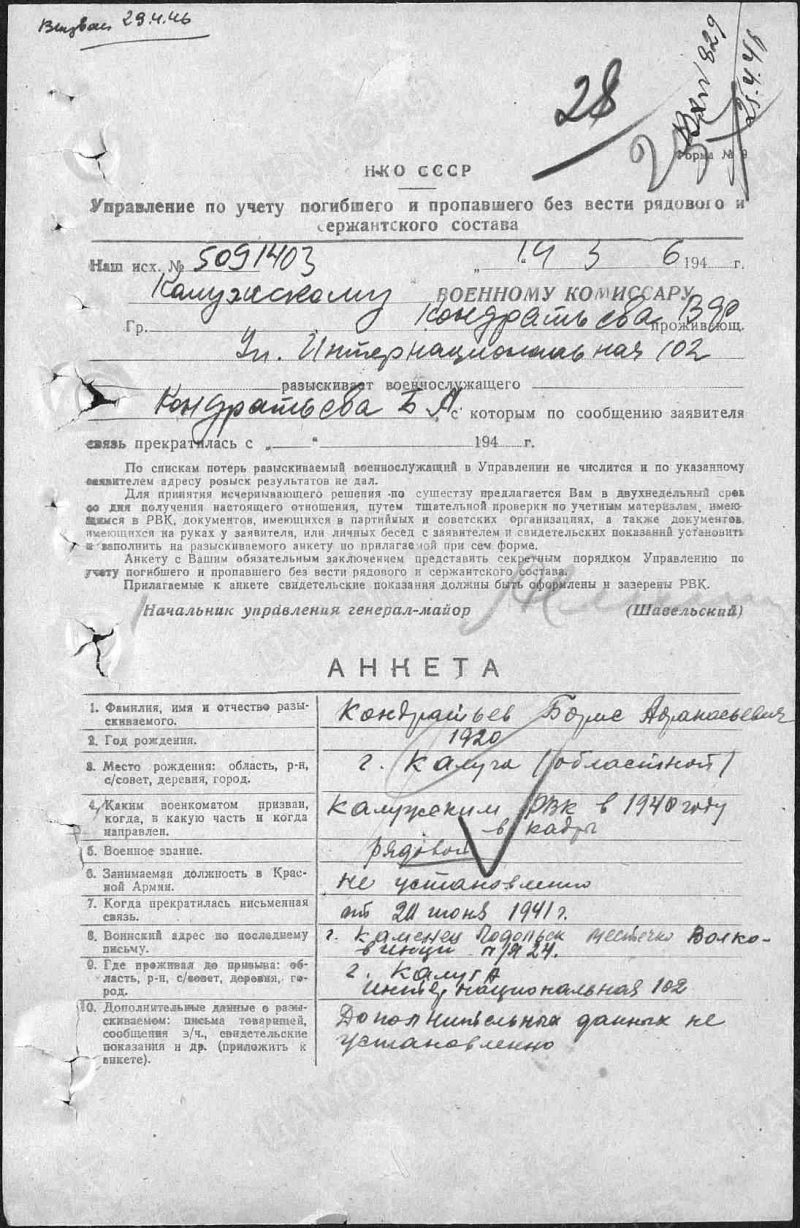 29.4.46
28
Вх№ 1829
25.4.46
Форма № 9
НКО СССР
Управление по учету погибшего и пропавшего без вести рядового и
сержантского состава
Наш исх. № 5091403 „14 3 6 194 г.
Калужскому ВОЕННОМУ КОМИССАРУ
Гр. Кондратьева проживающ.
Ул. Интернациональная 102
разыскивает военнослужащего
Кондратьева Б А с которым по сообщению заявителя
связь прекратилась с „ “ 194 г.
По спискам потерь разыскиваемый военнослужащий в Управлении не числится и по указанному
заявителем адресу розыск результатов не дал.
Для принятия исчерпывающего решения по существу предлагается Вам в двухнедельный срок
со дня получения настоящего отношения, путем тщательной проверки по учетным материалам, имею-
щимся в РВК, документов, имеющихся в партийных и советских организациях, а также документов,
имеющихся на руках у заявителя, или личных бесед с заявителем и свидетельских показаний установить
и заполнить на разыскиваемого анкету по прилагаемой при сем форме.
Анкету с Вашим обязательным заключением представить секретным порядком Управлению по
учету погибшего и пропавшего без вести рядового и сержантского состава.
Прилагаемые к анкете свидетельские показания должны быть оформлены и заверены РВК.
Начальник управления генерал-майор (Шавельский)
АНКЕТА
1. Фамилия, имя и отчество разы-
скиваемого.
Кондратьев Борис Афанасьевич
2. Год рождения.
1920
3. Место рождения: область, р-н,
с/совет, деревня, город.
г. Калуга (областной)
4. Каким военкоматом призван,
когда, в какую часть и когда
направлен.
Калужским РВК в 1940 году
в кадры
5. Военное звание.
рядовой
6. Занимаемая должность в Крас-
ной Армии.
не установленно
7. Когда прекратилась письменная
связь.
от 20 июня 1941 г.
8. Воинский адрес по последнему
письму.
г. Каменец Подольск местечко Волко-
винцы п/я 24.
9. Где проживал до призыва: об-
ласть, р-н, с/совет, деревня, го-
род.
г. Калуга
Интернациональная 102
10. Дополнительные данные о разы-
скиваемом: письма товарищей,
сообщения в/ч., свидетельские
показания и др. (приложить к
анкете).
Дополнительных данных не
установленно